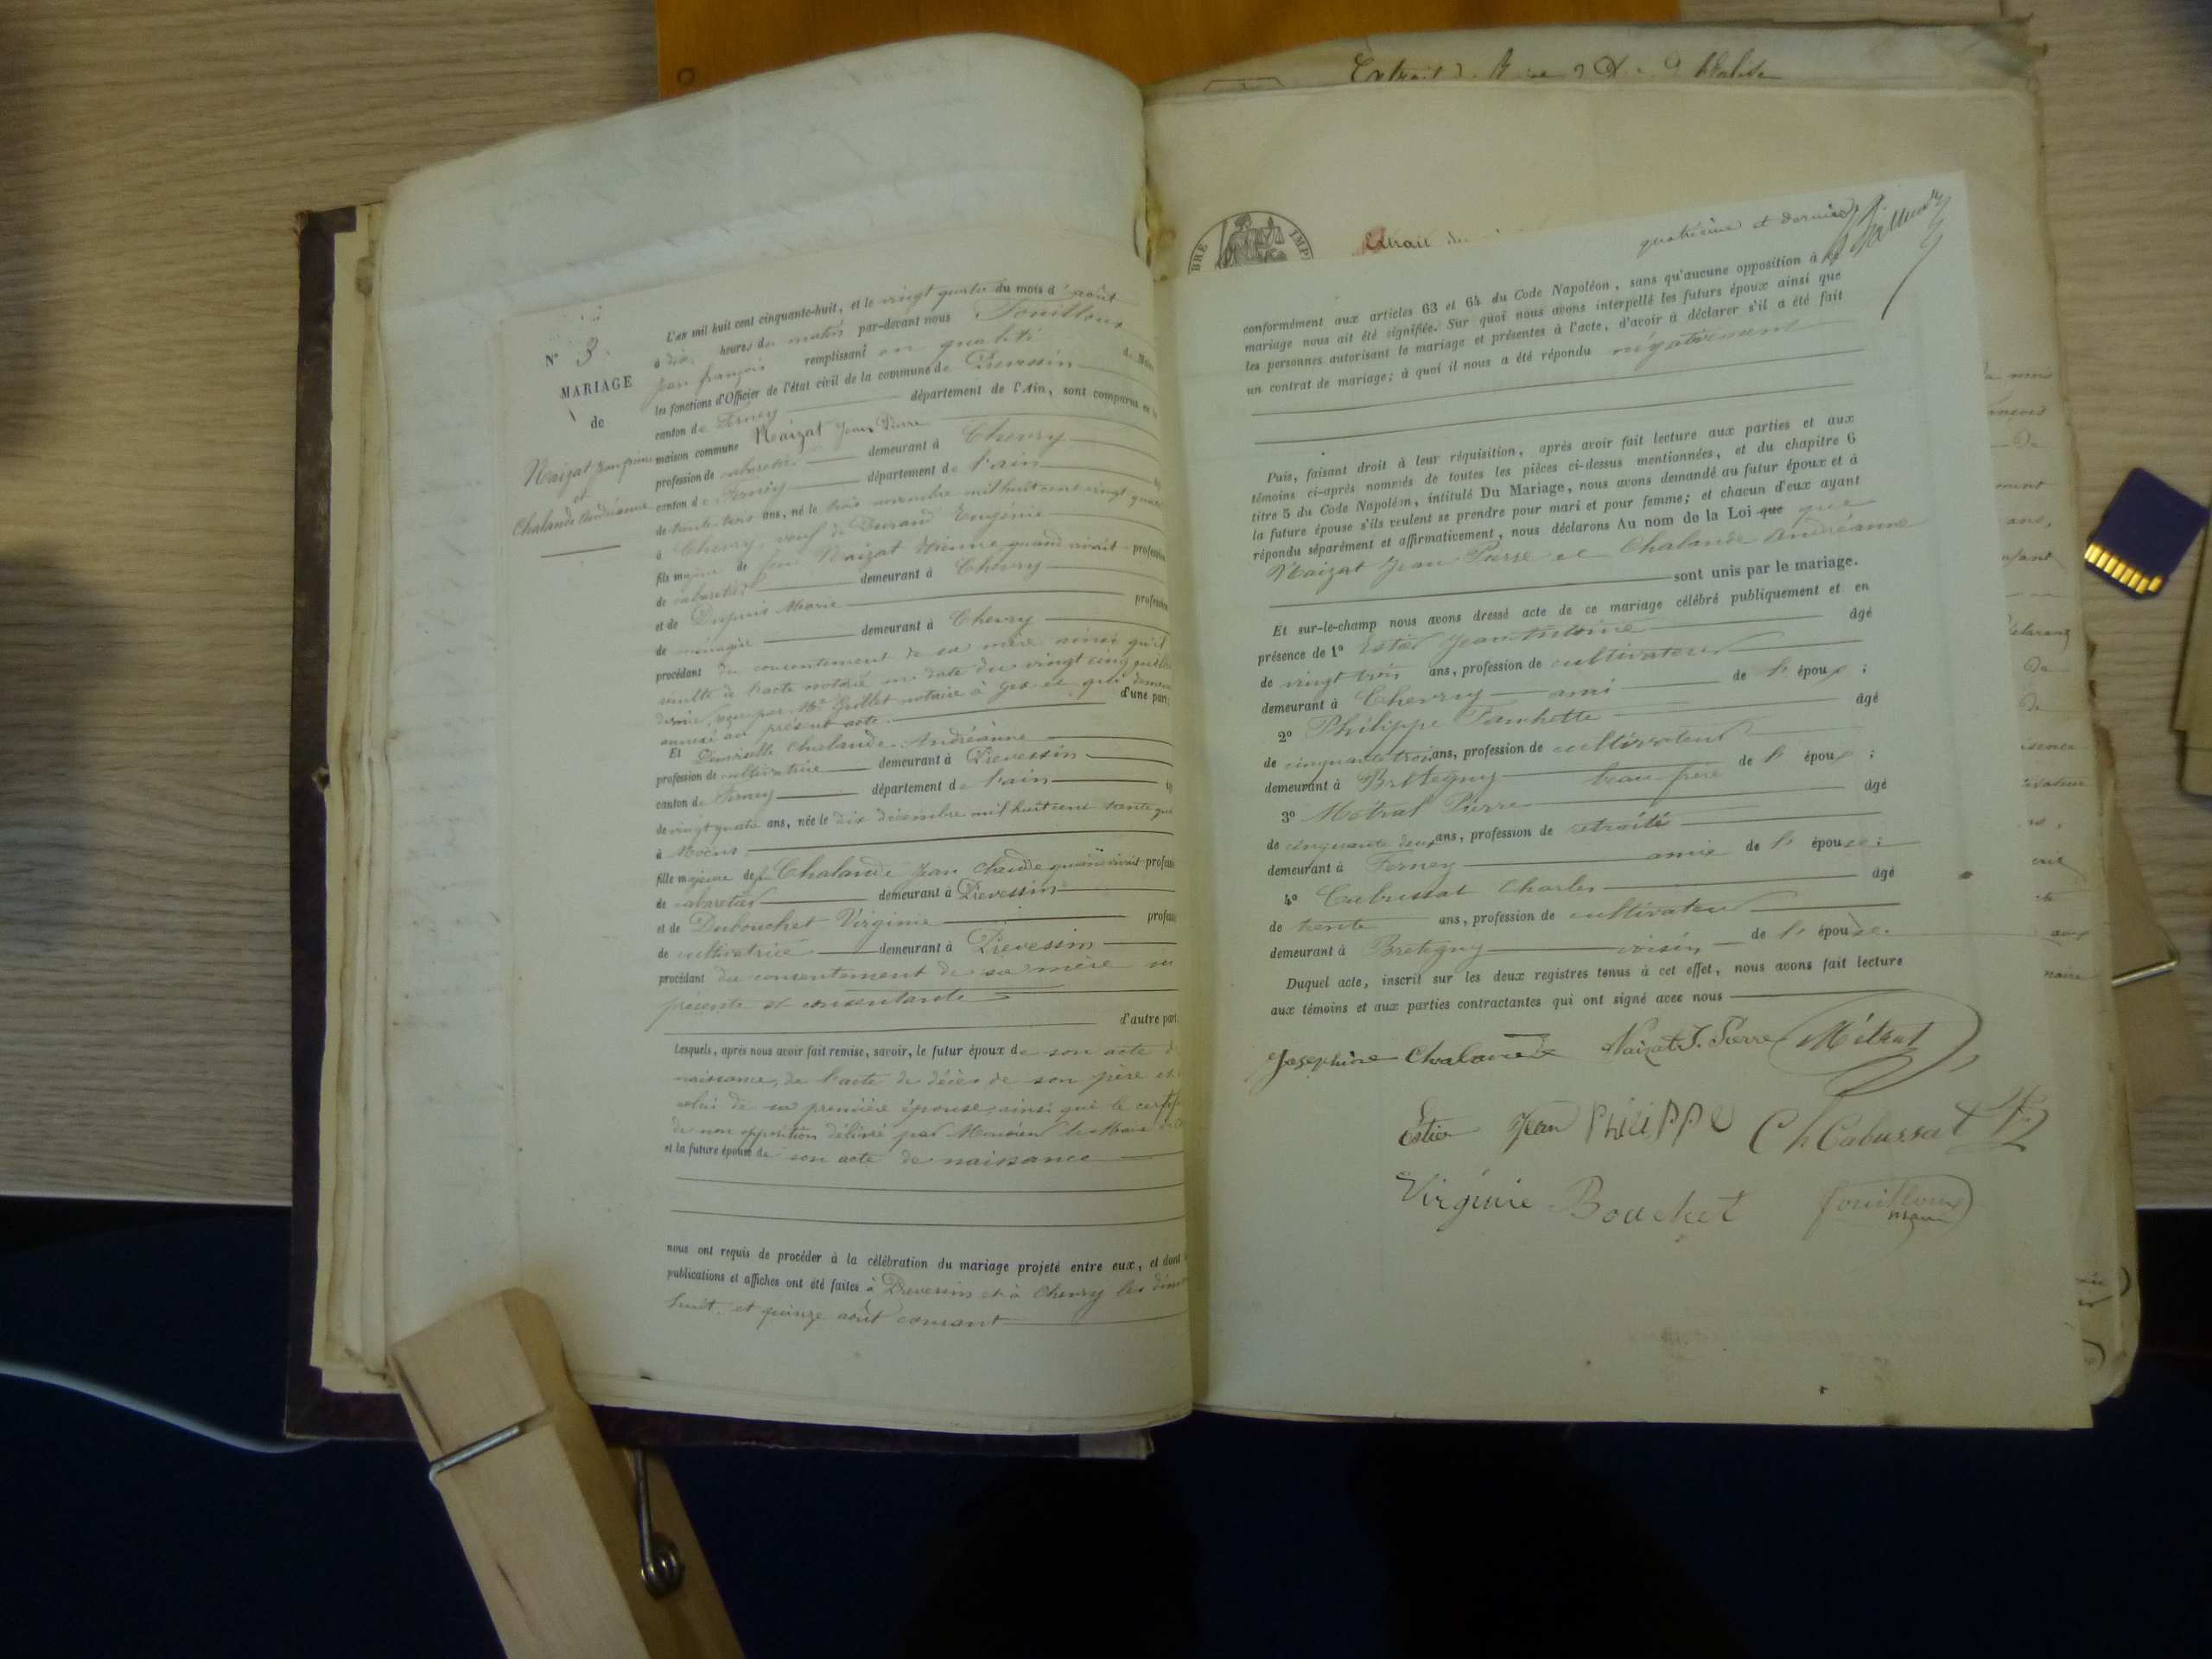 N° 3.
MARIAGE
de
Naizat Jean Pierre
et
Chalande Andréanne
L'an mil huit cent cinquante-huit, et le vingt quatre du mois d'août
à dix heures du matin par-devant nous Fouilloux
Jean françois remplissant en qualité de Maire
les fonctions d'Officier de l'état civil de la commune de Prevessin
canton de Ferney département de l'Ain, sont comparus en la
maison commune Naizat Jean Pierre
profession de cabaretier demeurant à Chevry
canton de Ferney département de l'ain
de trente trois ans, né le trois novembre mil huit cent vingt quatre
à Chevry, veuf de Durand Eugénie
fils majeur de feu Naizat Etienne quand vivait profession
de cabaretier demeurant à Chevry
et de Dupuis Marie profession
de ménagère demeurant à Chevry
procédant du consentement de sa mère ainsi qu'il
résulte de l'acte notarié en date du vingt cinq juillet
dernier, reçu par Me Grollet notaire à Gex et qui demeure
annexé au présent acte. d'une part;
Et Demoiselle Chalande Andréanne
profession de cultivatrice demeurant à Prevessin
canton de Ferney département de l'ain
de vingt quatre ans, née le dix décembre mil huit cent trente
à Moëns
fille majeure de feu Chalande Jean Claude quand vivait profession
de cabaretier demeurant à Prevessin
et de Dubouchet Virginie profession
de cultivatrice demeurant à Prevessin
procédant du consentement de sa mère ici
présente et consentante
d'autre part.
Lesquels, après nous avoir fait remise, savoir, le futur époux de son acte de
naissance, de l'acte de décès de son père et
celui de sa première épouse, ainsi que le certif
de non opposition délivré par Monsieur le Maire
et la future épouse de son acte de naissance
nous ont requis de procéder à la célébration du mariage projeté entre eux, et dont
publications et affiches ont été faites à Prevessin et à Chevry les
huit et quinze août courant
Extrait
BRE IMP
Extrait
quatrième et dernier
conformément aux articles 63 et 64 du Code Napoléon, sans qu'aucune opposition à
mariage nous ait été signifiée. Sur quoi nous avons interpellé les futurs époux ainsi que
les personnes autorisant le mariage et présentes à l'acte, d'avoir à déclarer s'il a été fait
un contrat de mariage; à quoi il nous a été répondu négativement
Puis, faisant droit à leur réquisition, après avoir fait lecture aux parties et aux
témoins ci-après nommés de toutes les pièces ci-dessus mentionnées, et du chapitre 6
titre 5 du Code Napoléon, intitulé Du Mariage, nous avons demandé au futur époux et à
la future épouse s'ils veulent se prendre pour mari et pour femme; et chacun d'eux ayant
répondu séparément et affirmativement, nous déclarons Au nom de la Loi que que
Naizat Jean Pierre et Chalande Andréanne
sont unis par le mariage.
Et sur-le-champ nous avons dressé acte de ce mariage célébré publiquement et en
présence de 1° Estier Jean Antoine âgé
de vingt trois ans, profession de cultivateur
demeurant à Chevry ami de l'époux;
2° Philippe Franchette âgé
de cinquante trois ans, profession de cultivateur
demeurant à Brétegny beau-frère de l'époux;
3° Métral Pierre âgé
de cinquante deux ans, profession de retraité
demeurant à Ferney amie de l'épouse;
4° Cabussat Charles âgé
de trente ans, profession de cultivateur
demeurant à Bretegny voisin de l'épouse.
Duquel acte, inscrit sur les deux registres tenus à cet effet, nous avons fait lecture
aux témoins et aux parties contractantes qui ont signé avec nous
Josephine Chalande Naizat J. Pierre Métral
Estier Jean PhiliPPe Ch Cabussat
Virginie Bouchet fouilloux
maire